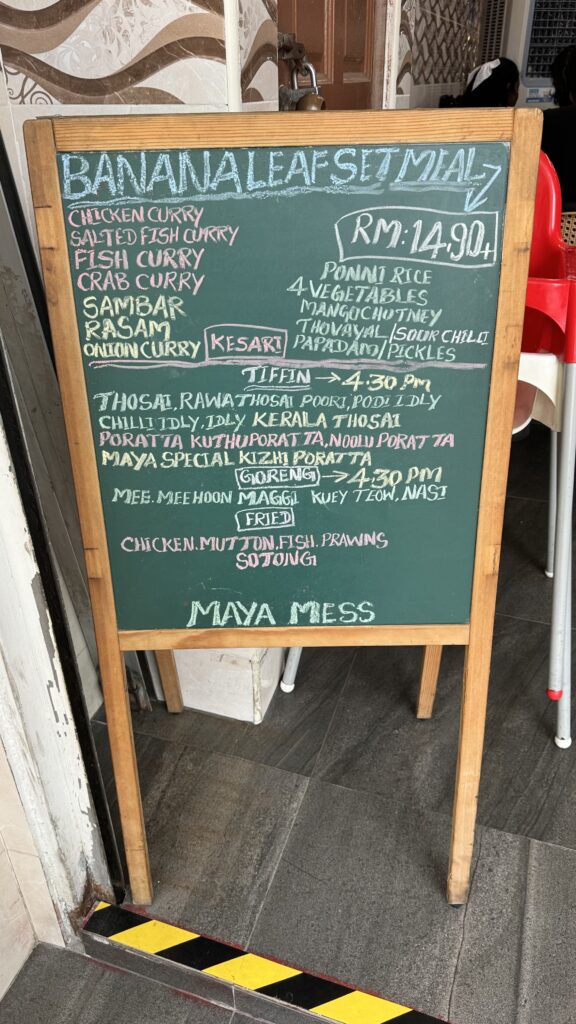 BANANA LEAF SET MEAL
CHICKEN CURRY
SALTED FISH CURRY
FISH CURRY
CRAB CURRY
SAMBAR
RASAM
ONION CURRY
KESARI
RM:14.90+
PONNI RICE
4 VEGETABLES
MANGO CHUTNEY
THOVAYAL/SOUR CHILI
PAPADAM/PICKLES
TIFFIN → 4:30 PM
THOSAI, RAWA THOSAI POORI, PODI IDLY
CHILLI IDLY, IDLY KERALA THOSAI
PORATTA KUTHUPORATTA, NOOLU PORATTA
MAYA SPECIAL KIZHI PORATTA
GORENG → 4:30 PM
MEE. MEEHOON MAGGI KUEY TEOW, NASI
FRIED
CHICKEN. MUTTON. FISH. PRAWNS
SOTONG
MAYA MESS